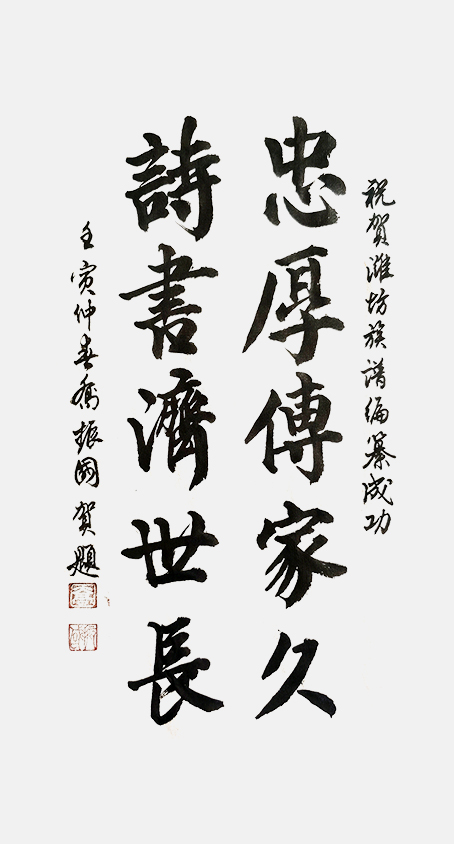 祝贺潍坊族谱编纂成功
忠厚傳家久
詩書濟世長
壬寅仲春喬振國贺題